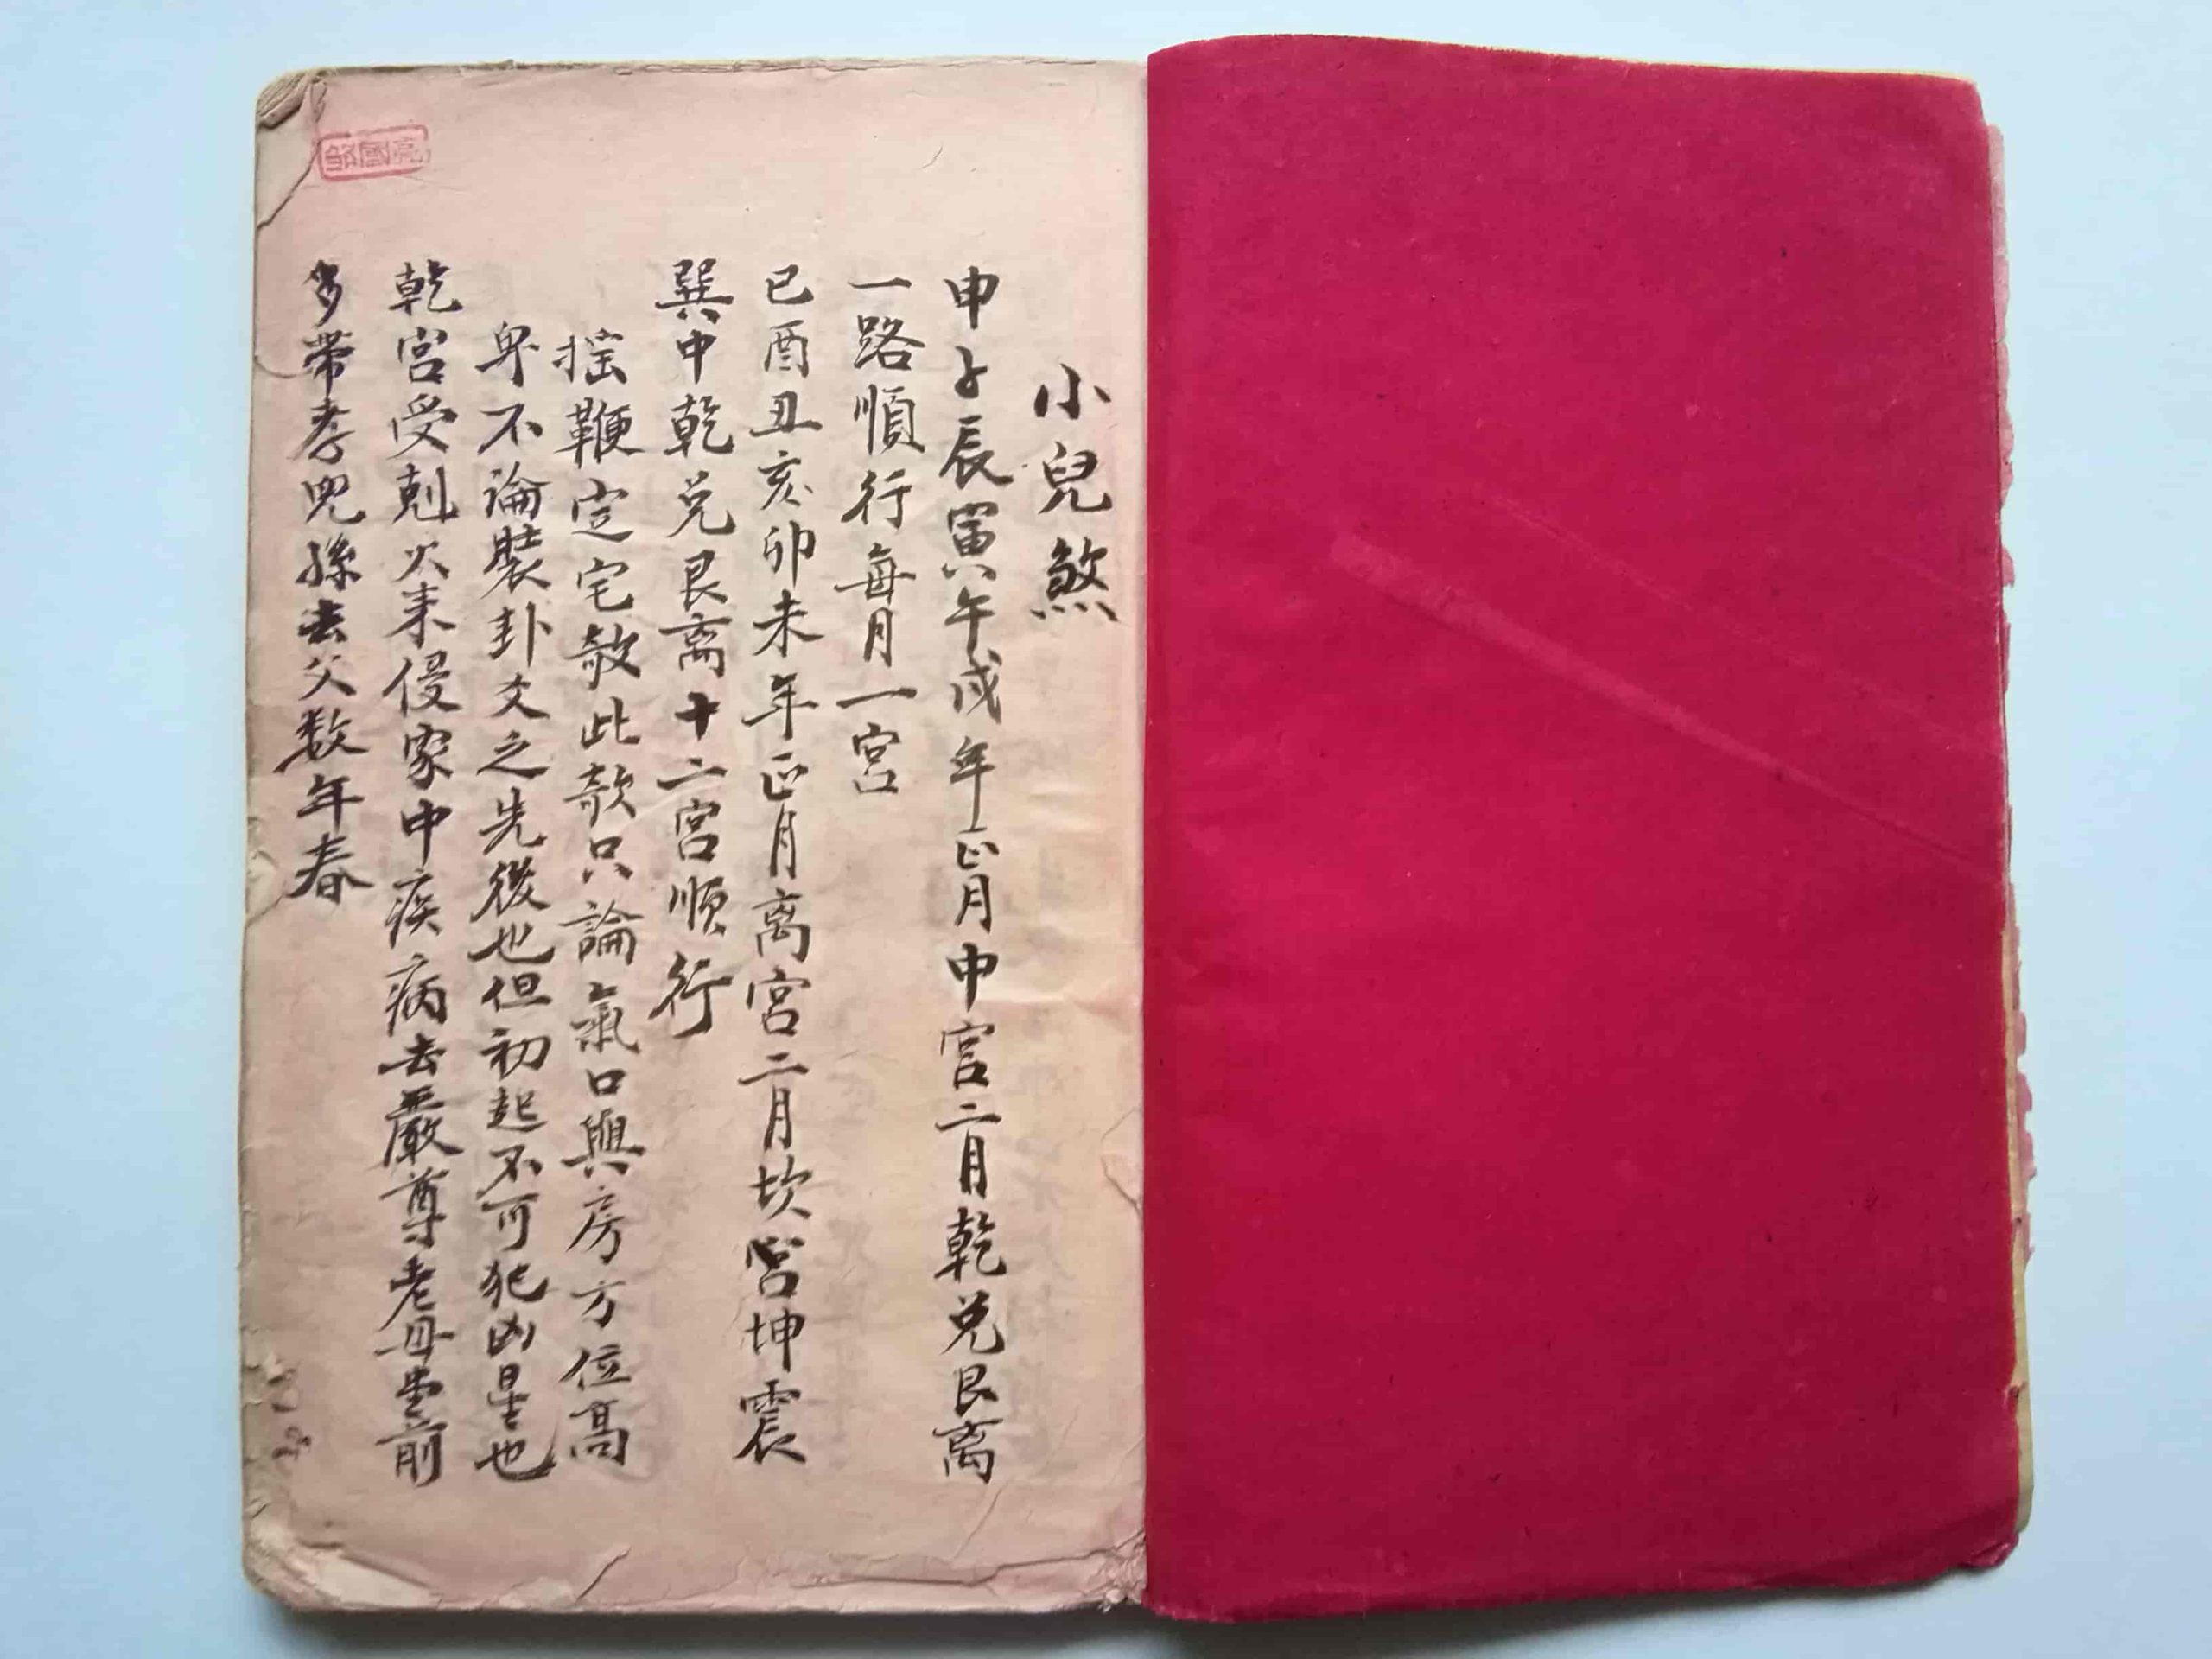 小兒煞
申子辰寅午戌年正月中宮二月乾兑艮离
一路順行每月一宮
巳酉丑亥卯未年正月离宮二月坎宮坤震
巽中乾兑艮离十二宮順行
摇鞭定宅敨此款只論氣口與房方位高
卑不論裝卦爻之先後也但初起不可犯凶星也
乾宮受剋火来侵家中疾病去嚴尊老母堂前
多帶孝兒孫去父数年春
鄒國亮